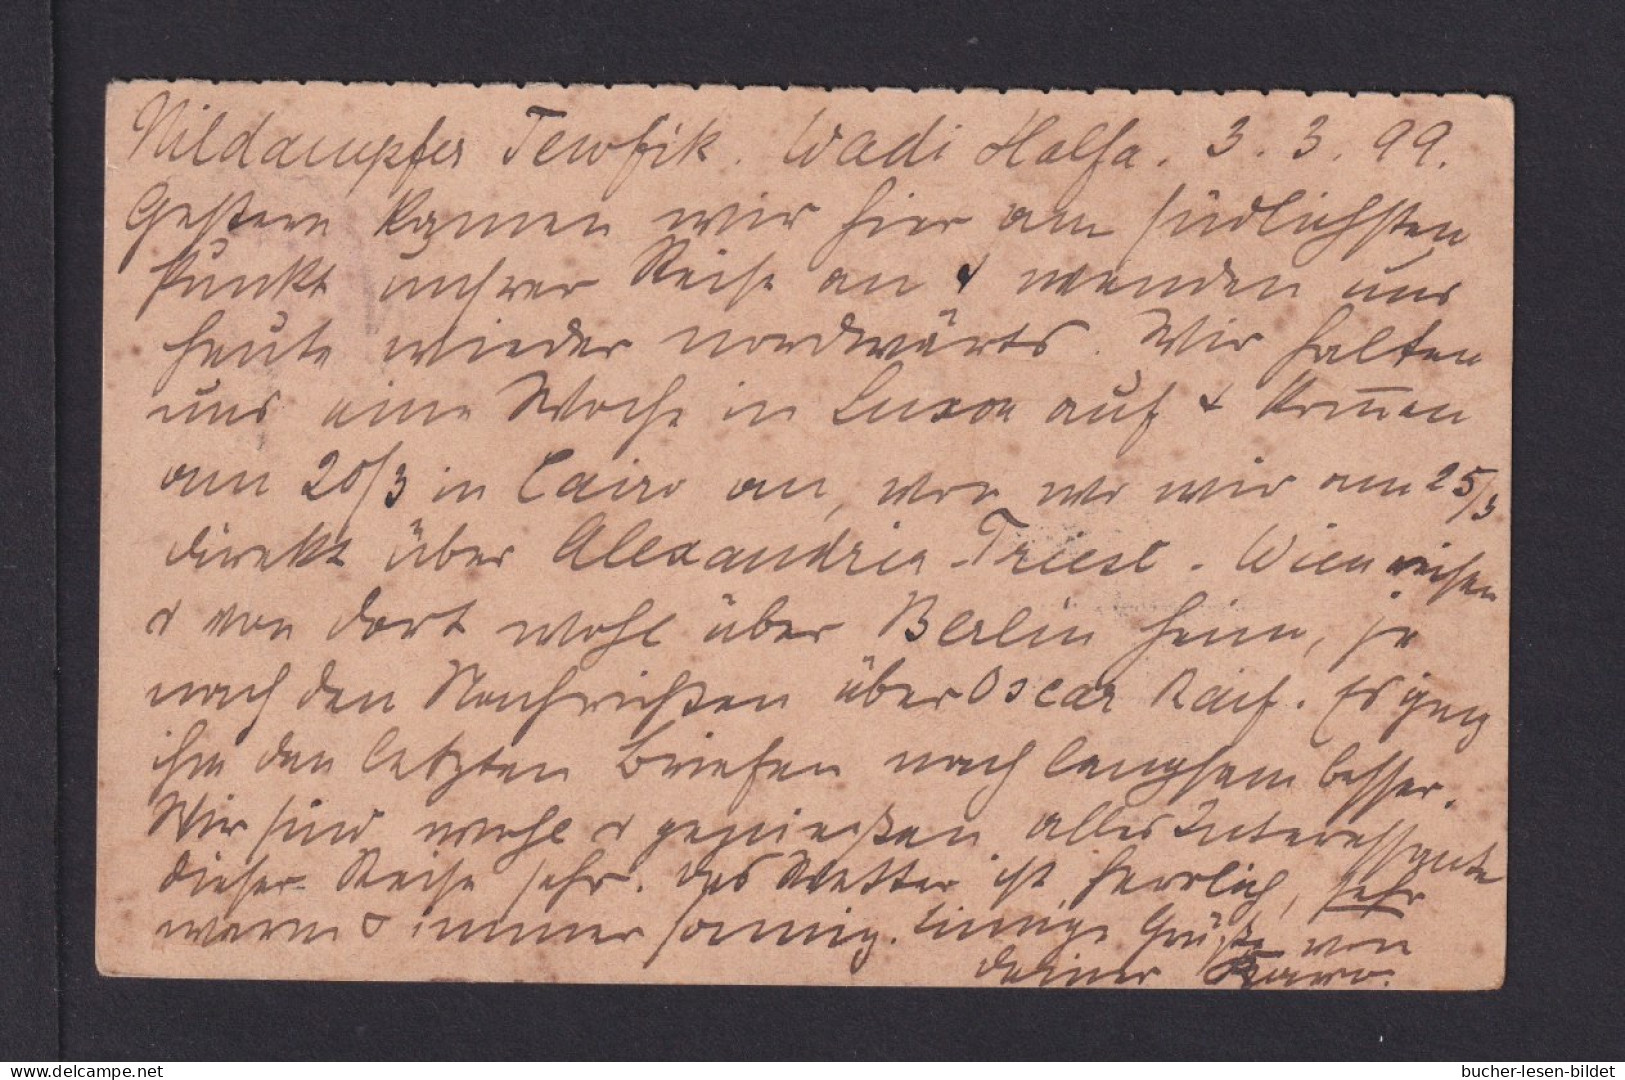 Nildampfer Tewfik. Wadi Halfa. 3. 3. 99.
Gestern kamen wir hier am südlichsten
Punkt unsrer Reise an & wenden uns
heute wieder nordwärts. Wir halten
uns eine Woche in Luxor auf & kom̄en
am 20/3 in Cairo an, von wo wir am 25/3
direkt über Alexandria-Triest-Wien reisen
& von dort wohl über Berlin heim, je
nach den Nachrichten über Oscar Raif. Es ging
ihm den letzten Briefen nach langsam besser.
Wir sind wohl & genießen alles Interessante
dieser Reise sehr. Das Wetter ist herrlich, sehr
warm & immer sonnig. Innige Grüße von
Deiner
bucher-lesen-bildet
© delcampe.net